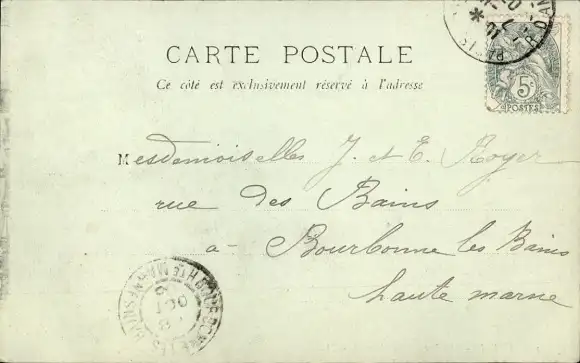 CARTE POSTALE
Ce côté est exclusivement réservé à l'adresse
5c
POSTES
PARIS
Mesdemoiselles J. et E. Royer
rue des Bains
a- Bourbonne les Bains
haute marne
OCT